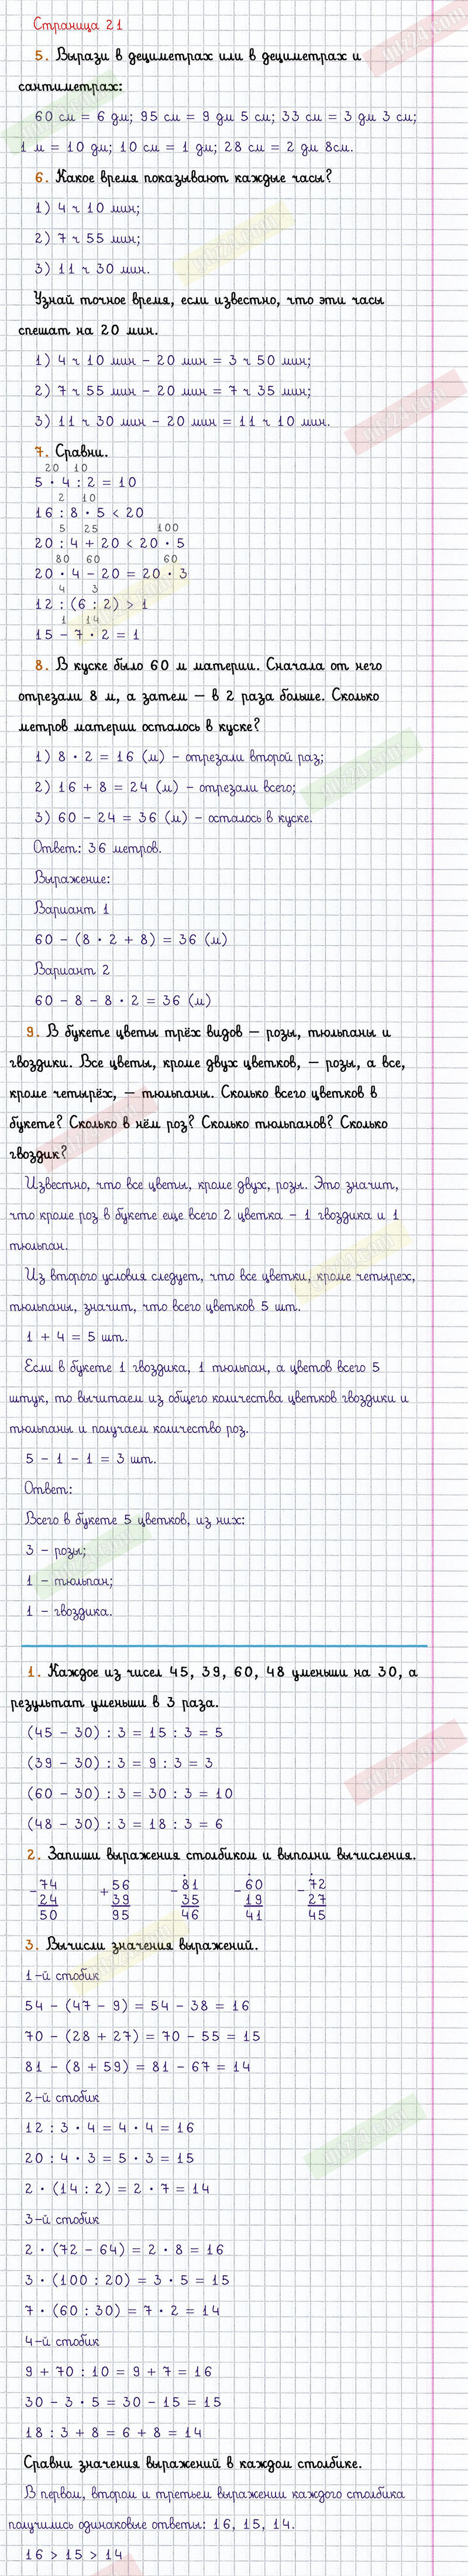 Страница 21
5. Вырази в дециметрах или в дециметрах и
сантиметрах:
60 см = 6 дм; 95 см = 9 дм 5 см; 33 см = 3 дм 3 см;
1 м = 10 дм; 10 см = 1 дм; 28 см = 2 дм 8см.
6. Какое время показывают каждые часы?
1) 4 ч 10 мин;
2) 7 ч 55 мин;
3) 11 ч 30 мин.
Узнай точное время, если известно, что эти часы
спешат на 20 мин.
1) 4 ч 10 мин – 20 мин = 3 ч 50 мин;
2) 7 ч 55 мин – 20 мин = 7 ч 35 мин;
3) 11 ч 30 мин – 20 мин = 11 ч 10 мин.
7. Сравни.
20 10
5 · 4 : 2 = 10
2 10
16 : 8 · 5 < 20
5 25 100
20 : 4 + 20 < 20 · 5
80 60 60
20 · 4 – 20 = 20 · 3
4 3
12 : (6 : 2) > 1
1 14
15 – 7 · 2 = 1
8. В куске было 60 м материи. Сначала от него
отрезали 8 м, а затем – в 2 раза больше. Сколько
метров материи осталось в куске?
1) 8 · 2 = 16 (м) – отрезали второй раз;
2) 16 + 8 = 24 (м) – отрезали всего;
3) 60 – 24 = 36 (м) – осталось в куске.
Ответ: 36 метров.
Выражение:
Вариант 1
60 – (8 · 2 + 8) = 36 (м)
Вариант 2
60 – 8 – 8 · 2 = 36 (м)
9. В букете цветы трёх видов – розы, тюльпаны и
гвоздики. Все цветы, кроме двух цветков, – розы, а все,
кроме четырёх, – тюльпаны. Сколько всего цветков в
букете? Сколько в нём роз? Сколько тюльпанов? Сколько
гвоздик?
Известно, что все цветы, кроме двух, розы. Это значит,
что кроме роз в букете еще всего 2 цветка – 1 гвоздика и 1
тюльпан.
Из второго условия следует, что все цветки, кроме четырех,
тюльпаны, значит, что всего цветков 5 шт.
1 + 4 = 5 шт.
Если в букете 1 гвоздика, 1 тюльпан, а цветов всего 5
штук, то вычитаем из общего количества цветков гвоздики и
тюльпаны и получаем количество роз.
5 – 1 – 1 = 3 шт.
Ответ:
Всего в букете 5 цветков, из них:
3 – розы;
1 – тюльпан;
1 – гвоздика.
1. Каждое из чисел 45, 39, 60, 48 уменьши на 30, а
результат уменьши в 3 раза.
(45 – 30) : 3 = 15 : 3 = 5
(39 – 30) : 3 = 9 : 3 = 3
(60 – 30) : 3 = 30 : 3 = 10
(48 – 30) : 3 = 18 : 3 = 6
2. Запиши выражения столбиком и выполни вычисления.
– 74 + 56 – 81 – 60 – 72
24 39 35 19 27
50 95 46 41 45
3. Вычисли значения выражений.
1-й стобик
54 – (47 – 9) = 54 – 38 = 16
70 – (28 + 27) = 70 – 55 = 15
81 – (8 + 59) = 81 – 67 = 14
2-й стобик
12 : 3 · 4 = 4 · 4 = 16
20 : 4 · 3 = 5 · 3 = 15
2 · (14 : 2) = 2 · 7 = 14
3-й стобик
2 · (72 – 64) = 2 · 8 = 16
3 · (100 : 20) = 3 · 5 = 15
7 · (60 : 30) = 7 · 2 = 14
4-й стобик
9 + 70 : 10 = 9 + 7 = 16
30 – 3 · 5 = 30 – 15 = 15
18 : 3 + 8 = 6 + 8 = 14
Сравни значения выражений в каждом столбике.
В первом, втором и третьем выражении каждого столбика
получились одинаковые ответы: 16, 15, 14.
16 > 15 > 14